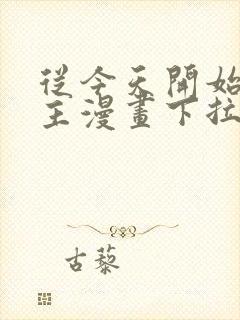 從今天開始
主漫畫下拉
古藜